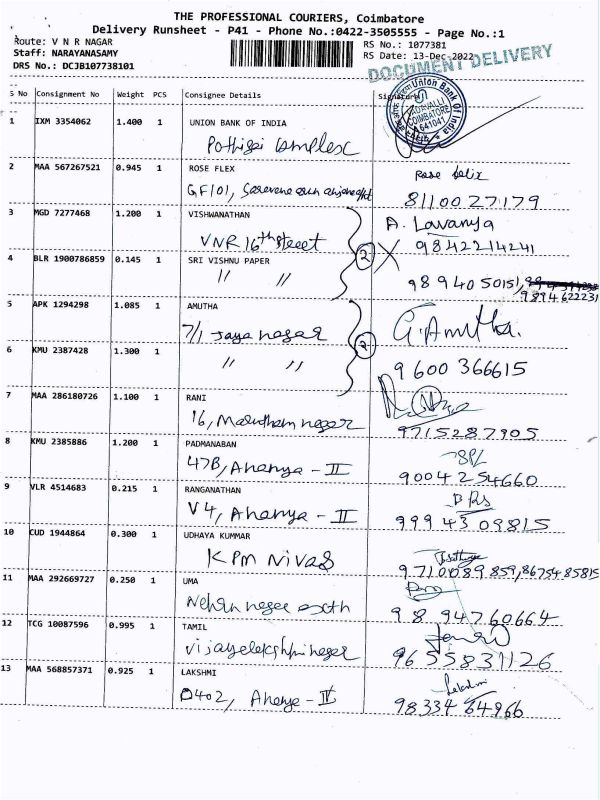 THE PROFESSIONAL COURIERS, Coimbatore
Delivery Runsheet - P41 - Phone No.:0422-3505555 - Page No.:1
Route: V N R NAGAR
RS No.: 1077381
Staff: NARAYANASAMY
RS Date: 13-Dec-2022
DRS No.: DCJB107738101
DOCUMENT DELIVERY
S No Consignment No Weight PCS Consignee Details Signature
Union Bank Of India
COIMBATORE
641041
1 IXM 3354062 1.400 1 UNION BANK OF INDIA
Complex
2 MAA 567267521 0.945 1 ROSE FLEX
GF101,
8110027179
3 MGD 7277468 1.200 1 VISHWANATHAN A. Lavanya
VNR 16th street 9842214241
2
4 BLR 1900786859 0.145 1 SRI VISHNU PAPER
" " 9894050151,
9894622231
5 APK 1294298 1.085 1 AMUTHA
7/1 Jaya nagar G. Amutha.
2
6 KMU 2387428 1.300 1
" " 9600366615
7 MAA 286180726 1.100 1 RANI
16, nagar 9715287905
8 KMU 2385886 1.200 1 PADMANABAN
47B, Ananya - II 9004254660
9 VLR 4514683 0.215 1 RANGANATHAN
V4, Ananya - II 9994309815
10 CUD 1944864 0.300 1 UDHAYA KUMMAR
KPM Nivas 9710089859, 8675485815
11 MAA 292669727 0.250 1 UMA
9894760664
12 TCG 10087596 0.995 1 TAMIL
9655831126
13 MAA 568857371 0.925 1 LAKSHMI Lakshmi
D402, Ananya - IV 9833464966